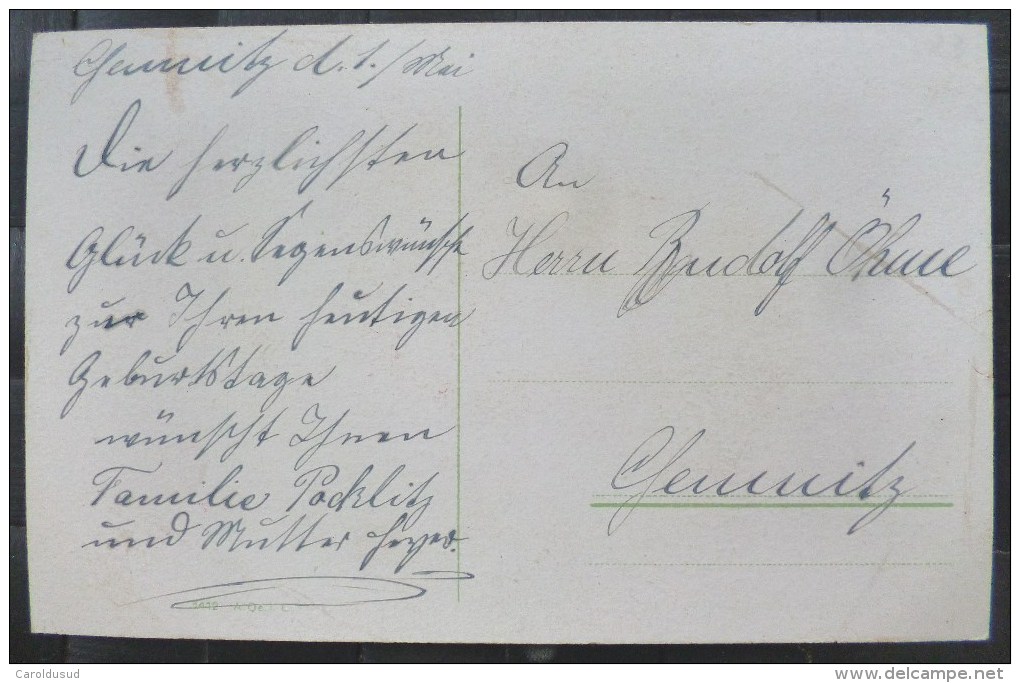 Chemnitz d. 1./Mai
Die herzlichsten
Glück u. Segenswünsche
zur Ihren heutigen
Geburtstage
wünscht Ihnen
Familie Pocklitz
und Mutter Heyer.
An
Herrn Rudolf Öhme
Chemnitz
Caroldusud
www.delcampe.net